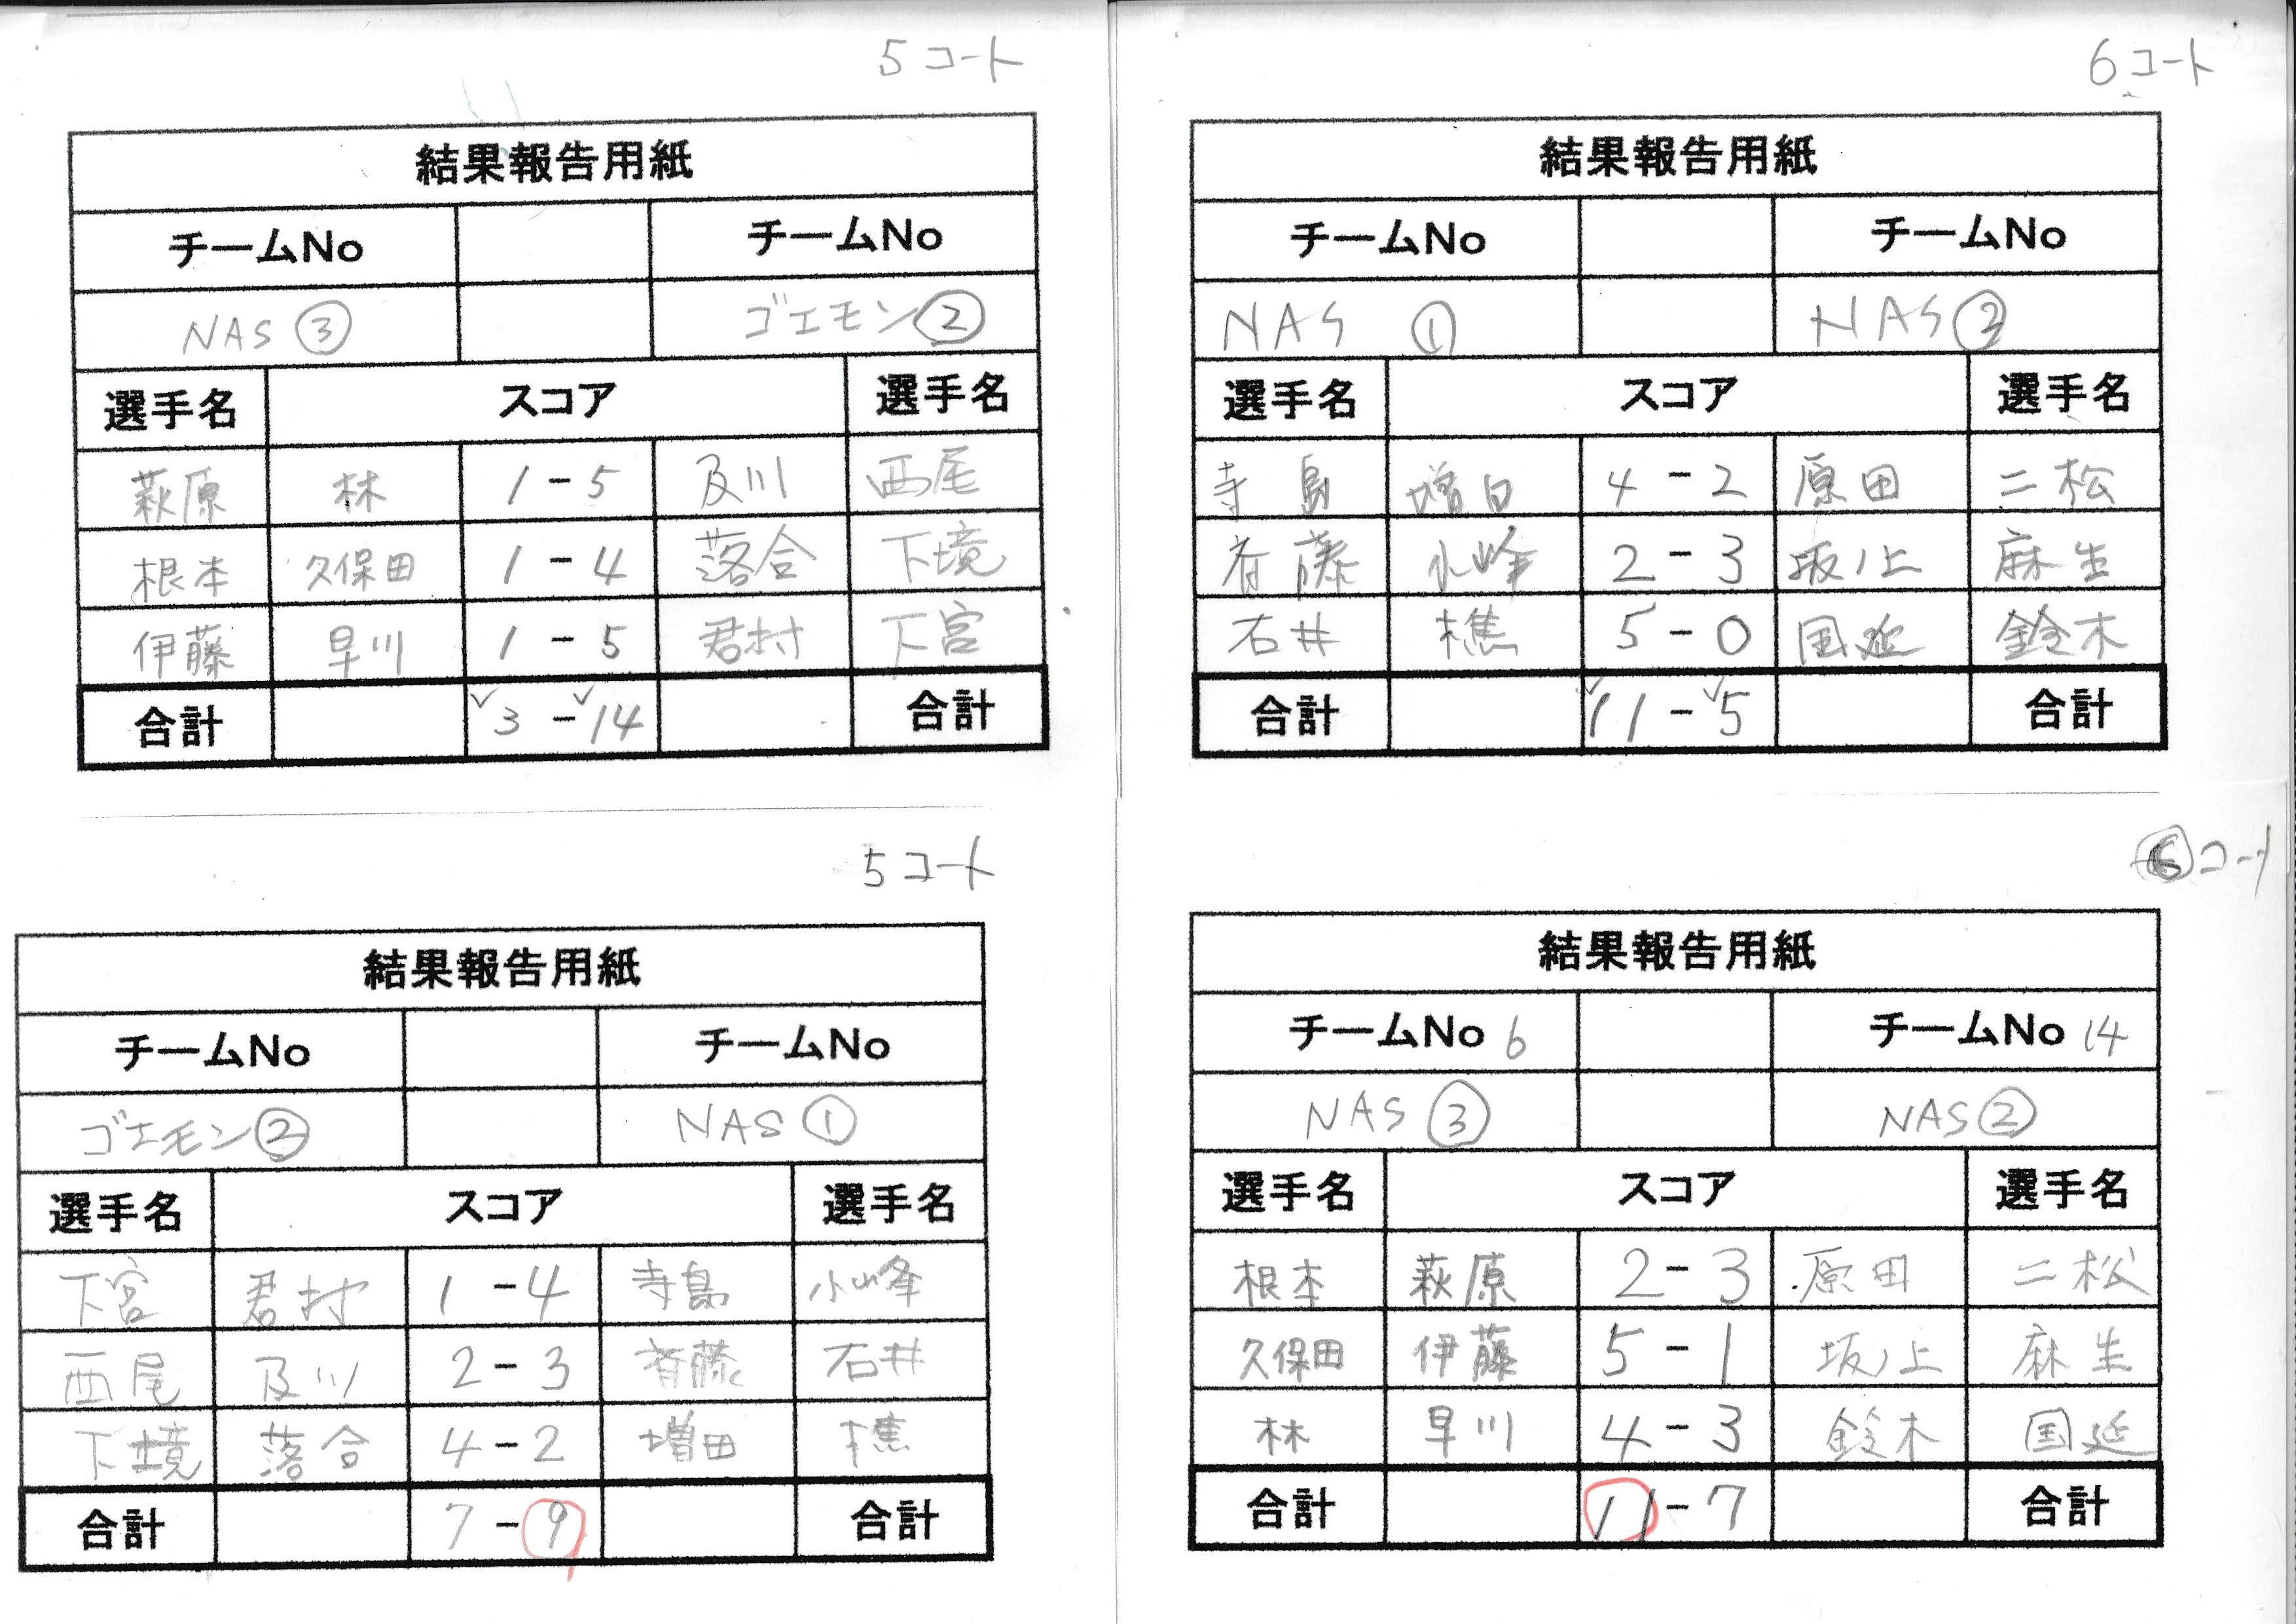 5コート
結果報告用紙
チームNo チームNo
NAS ③ ゴエモン②
選手名 スコア 選手名
萩原 林 1-5 及川 西尾
根本 久保田 1-4 落合 下境
伊藤 早川 1-5 君村 下宮
合計 3-14 合計
6コート
結果報告用紙
チームNo チームNo
NAS ① NAS②
選手名 スコア 選手名
寺島 増田 4-2 原田 二松
斉藤 小峰 2-3 坂ノ上 麻生
石井 樵 5-0 国延 鈴木
合計 11-5 合計
5コート
結果報告用紙
チームNo チームNo
ゴエモン② NAS ①
選手名 スコア 選手名
下宮 君村 1-4 寺島 小峰
西尾 及川 2-3 斉藤 石井
下境 落合 4-2 増田 樵
合計 7-9 合計
⑥コート
結果報告用紙
チームNo 6 チームNo 14
NAS ③ NAS②
選手名 スコア 選手名
根本 萩原 2-3 原田 二松
久保田 伊藤 5-1 坂ノ上 麻生
林 早川 4-3 鈴木 国延
合計 11-7 合計